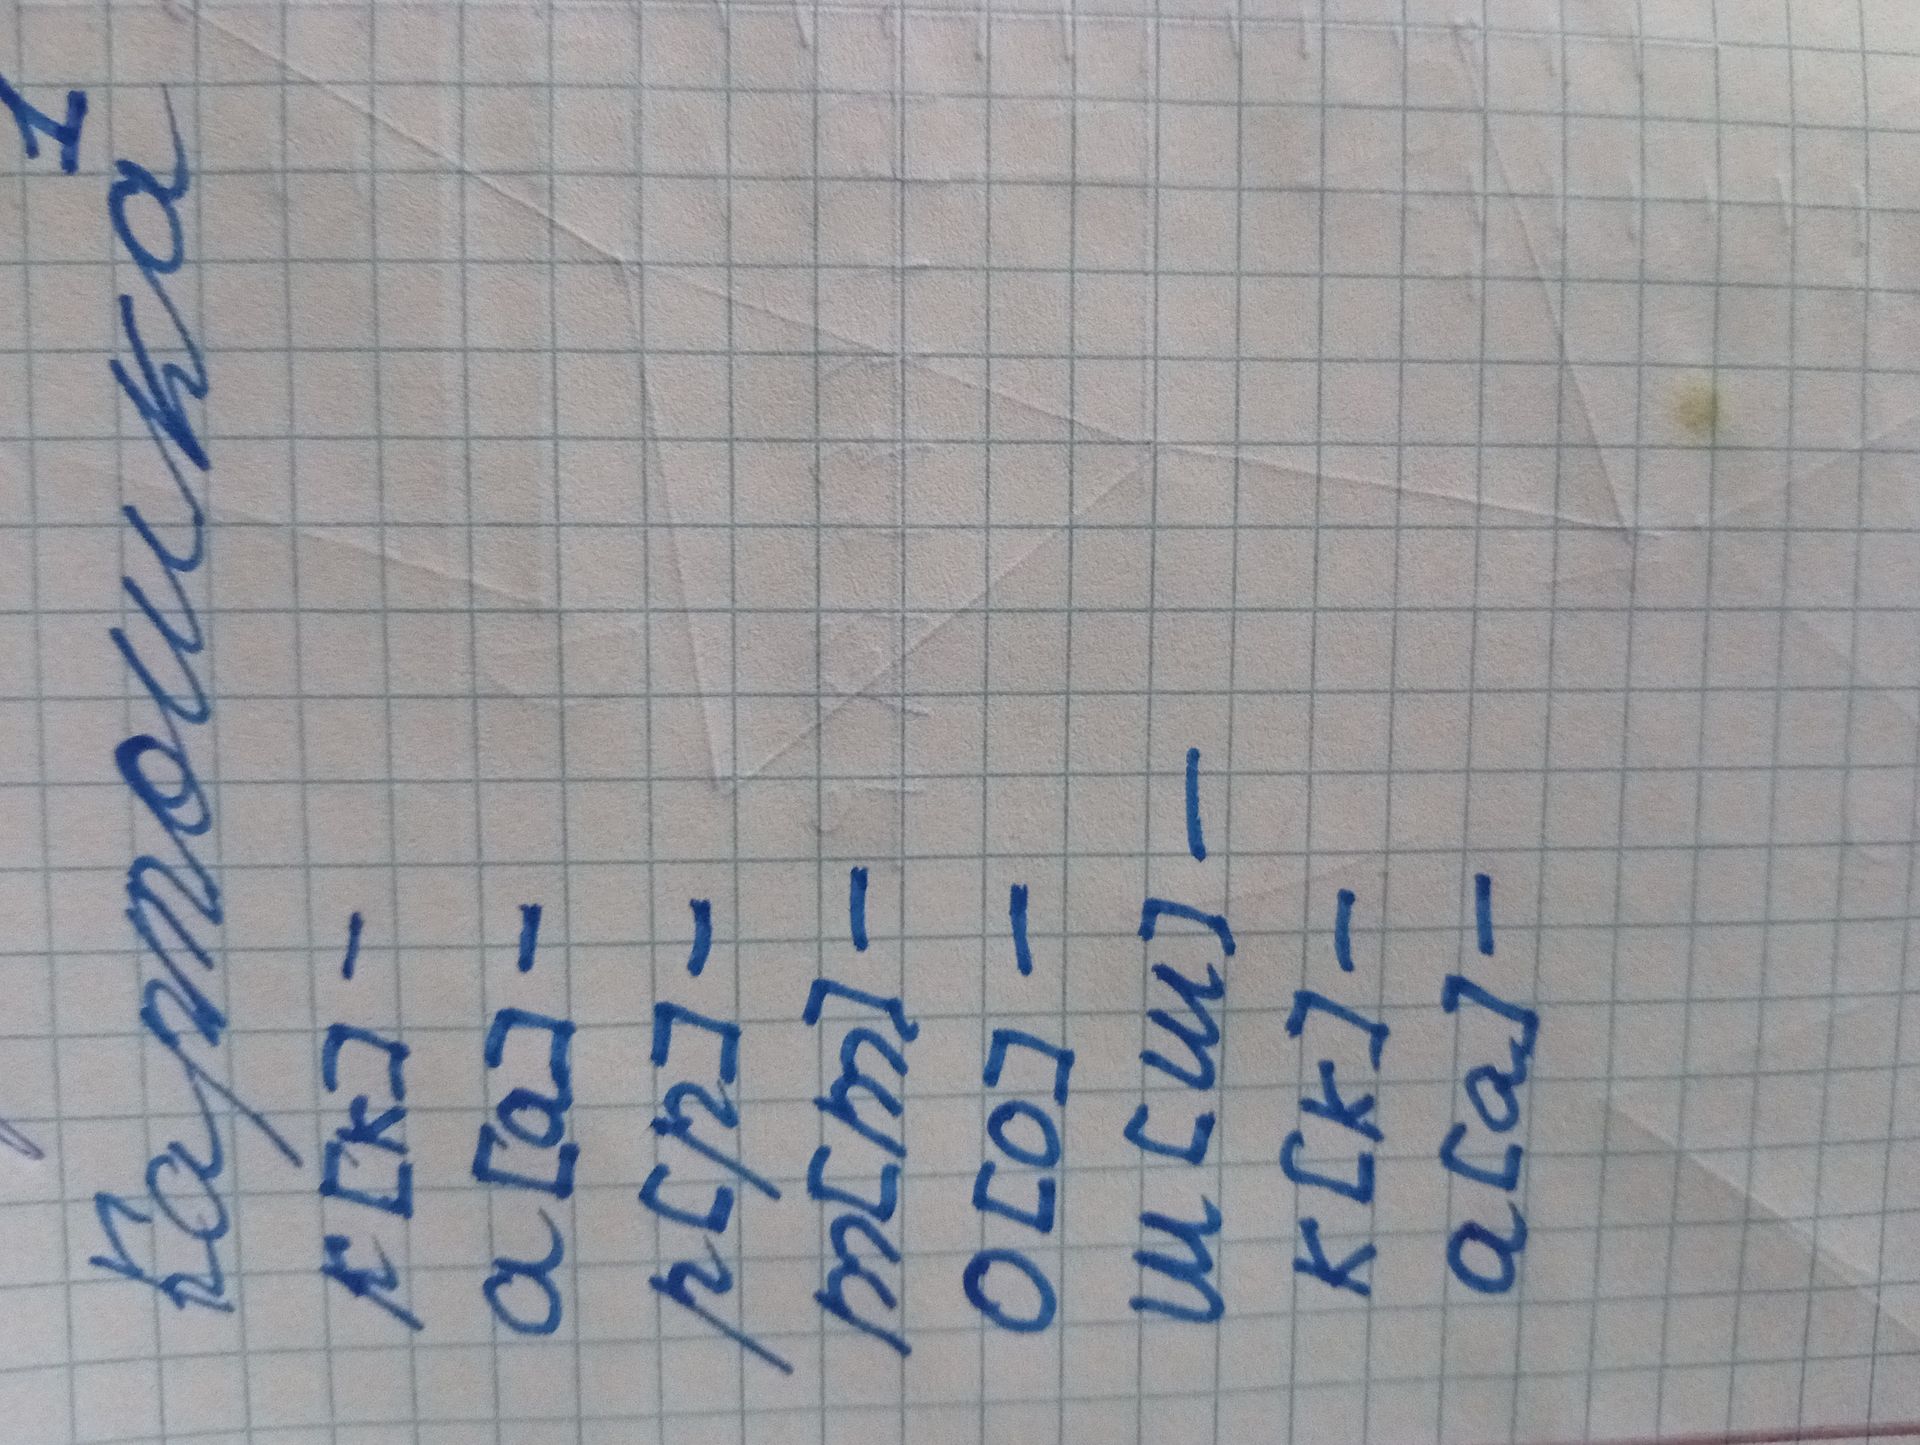 Картошка 1
к [к] -
а [а] -
р [р] -
т [т] -
о [о] -
ш [ш] -
к [к] -
а [а] -